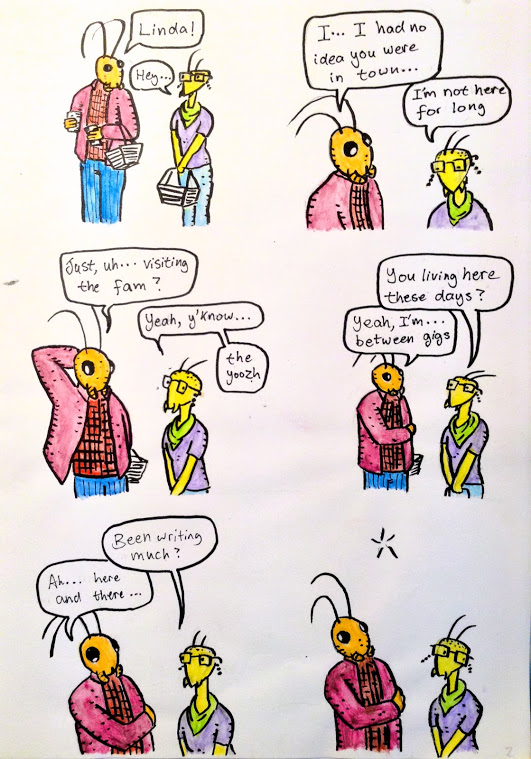 Linda!
Hey...
I... I had no
idea you were
in town...
I'm not here
for long
Just, uh... visiting
the fam?
Yeah, y'know...
the
yoozh
You living here
these days?
Yeah, I'm...
between gigs
Been writing
much?
Ah... here
and there...
2